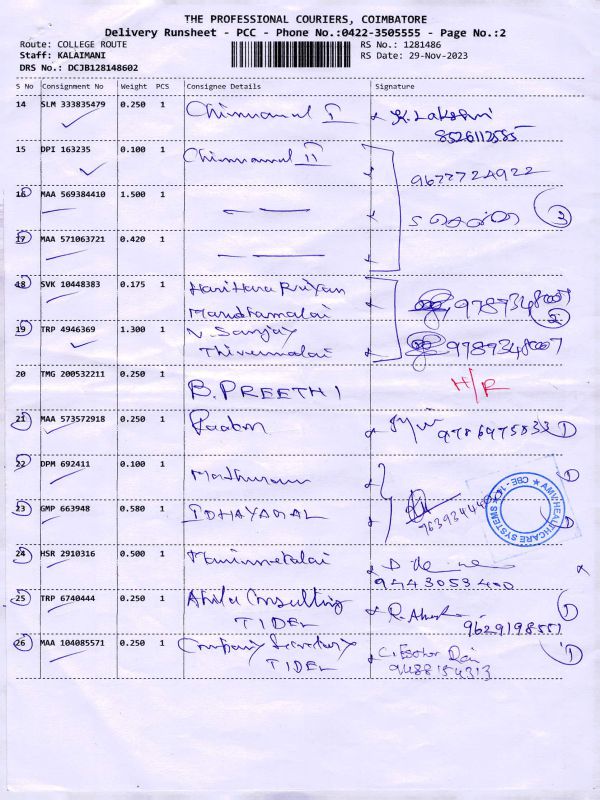 THE PROFESSIONAL COURIERS, COIMBATORE
Delivery Runsheet - PCC - Phone No.:0422-3505555 - Page No.:2
Route: COLLEGE ROUTE
RS No.: 1281486
Staff: KALAIMANI
RS Date: 29-Nov-2023
DRS No.: DCJB128148602
S No Consignment No Weight PCS Consignee Details Signature
14 SLM 333835479 0.250 1 Chinnamul I K. Lakshmi
8526112585
15 DPI 163235 0.100 1 Chinnamul II
9677724922
16 MAA 569384410 1.500 1
3
17 MAA 571063721 0.420 1
18 SVK 10448383 0.175 1 Hari Hara Priyan
Mandhamalai
9789348007
19 TRP 4946369 1.300 1 N. Sanjay
Thirumalai
9789348007
20 TMG 200532211 0.250 1 B. PREETHI H/R
21 MAA 573572918 0.250 1 9786975833 1
22 DPM 692411 0.100 1 1
23 GMP 663948 0.580 1 IDHAYADAL
AMV HEALTHCARE SYSTEMS ★ CBE - 14 ★
24 HSR 2910316 0.500 1 Manimekalai
9443053400
25 TRP 6740444 0.250 1 Akila Consulting
TIDEL
1
9629198551
26 MAA 104085571 0.250 1 Company Secretary
TIDEL
C. Esther Rani
9488154313
1